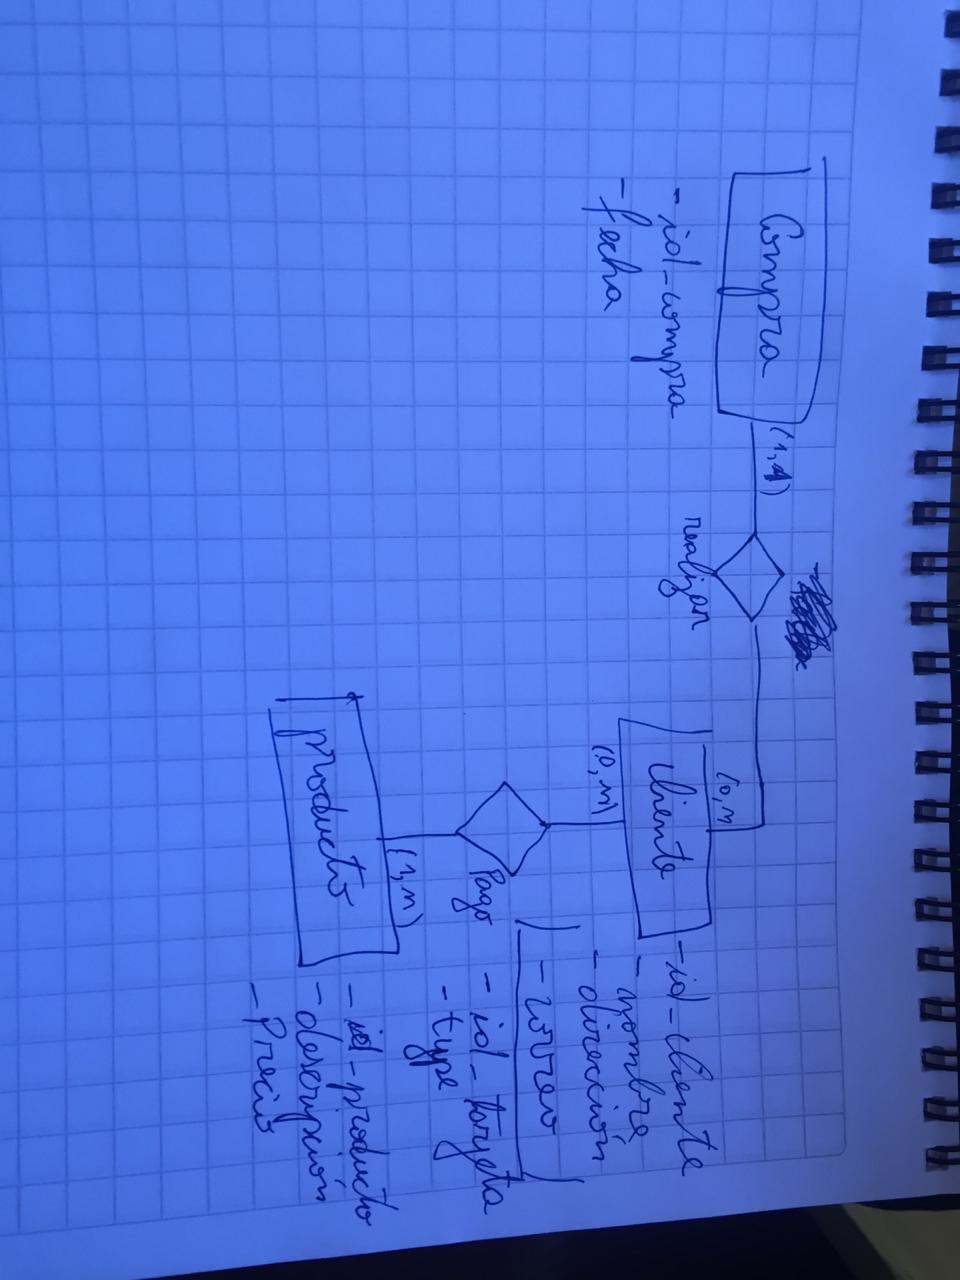 Compra
(1,1)
- id-compra
- fecha
realizan
(0,n
Cliente
- id-cliente
- nombre
- dirección
- correo
(0,m)
Pago
- id-tarjeta
- type
(1,m)
producto
- id-producto
- descripción
- Precio